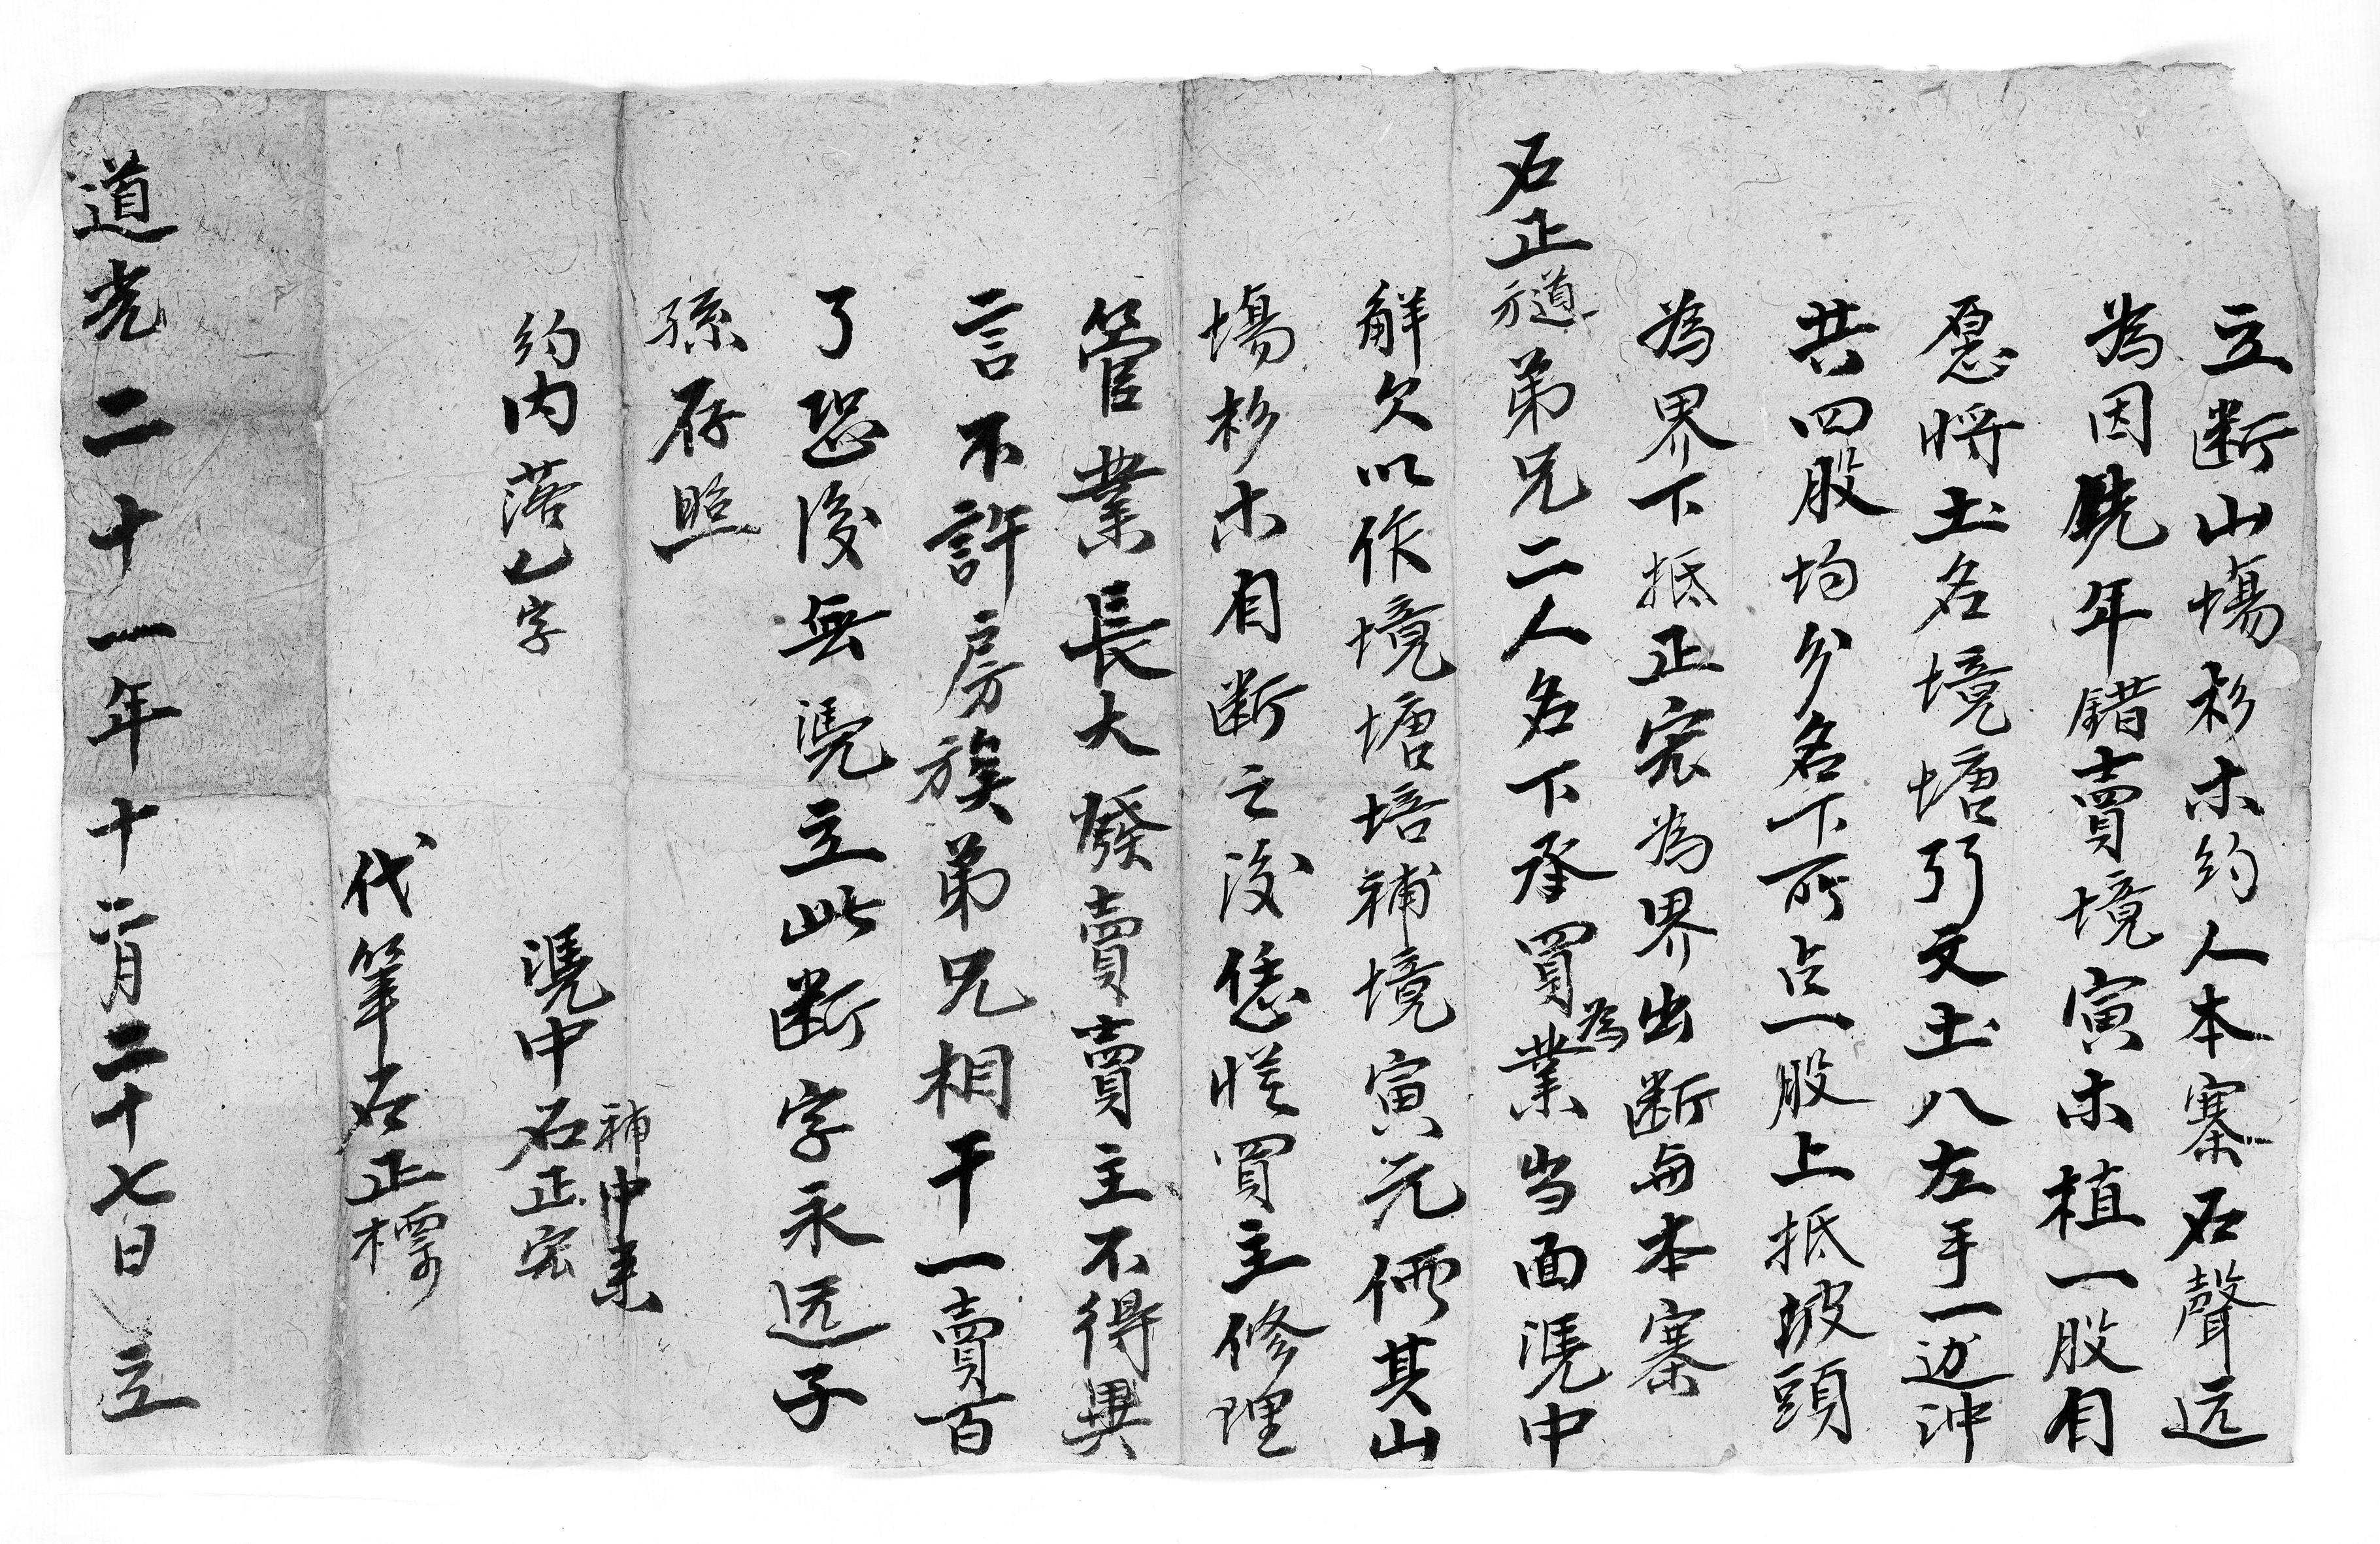 立断山塲杉木約人本寨石聲远
為因先年錯賣境寅木植一股自
愿将土名境塘引文土八左手一边冲
共四股均分名下所占一股上抵坡頭
為界下抵正宏為界出断與本寨
石正道方弟兄二人名下承買為業当面凴中
觧欠以作境塘培補境寅元価其山
塲杉木自断之後恁從買主修理
管業長大發賣賣主不得異
言不許房族弟兄相干一賣百
了恐後無凴立此断字永远子
孫存照
約内落乙字
補中耒
凴中石正宏
代筆石正標
道光二十一年十二月二十七日立